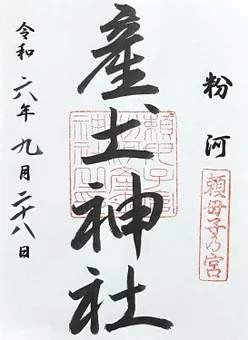 粉河
頼母子乃宮
産土神社
令和六年九月二十八日